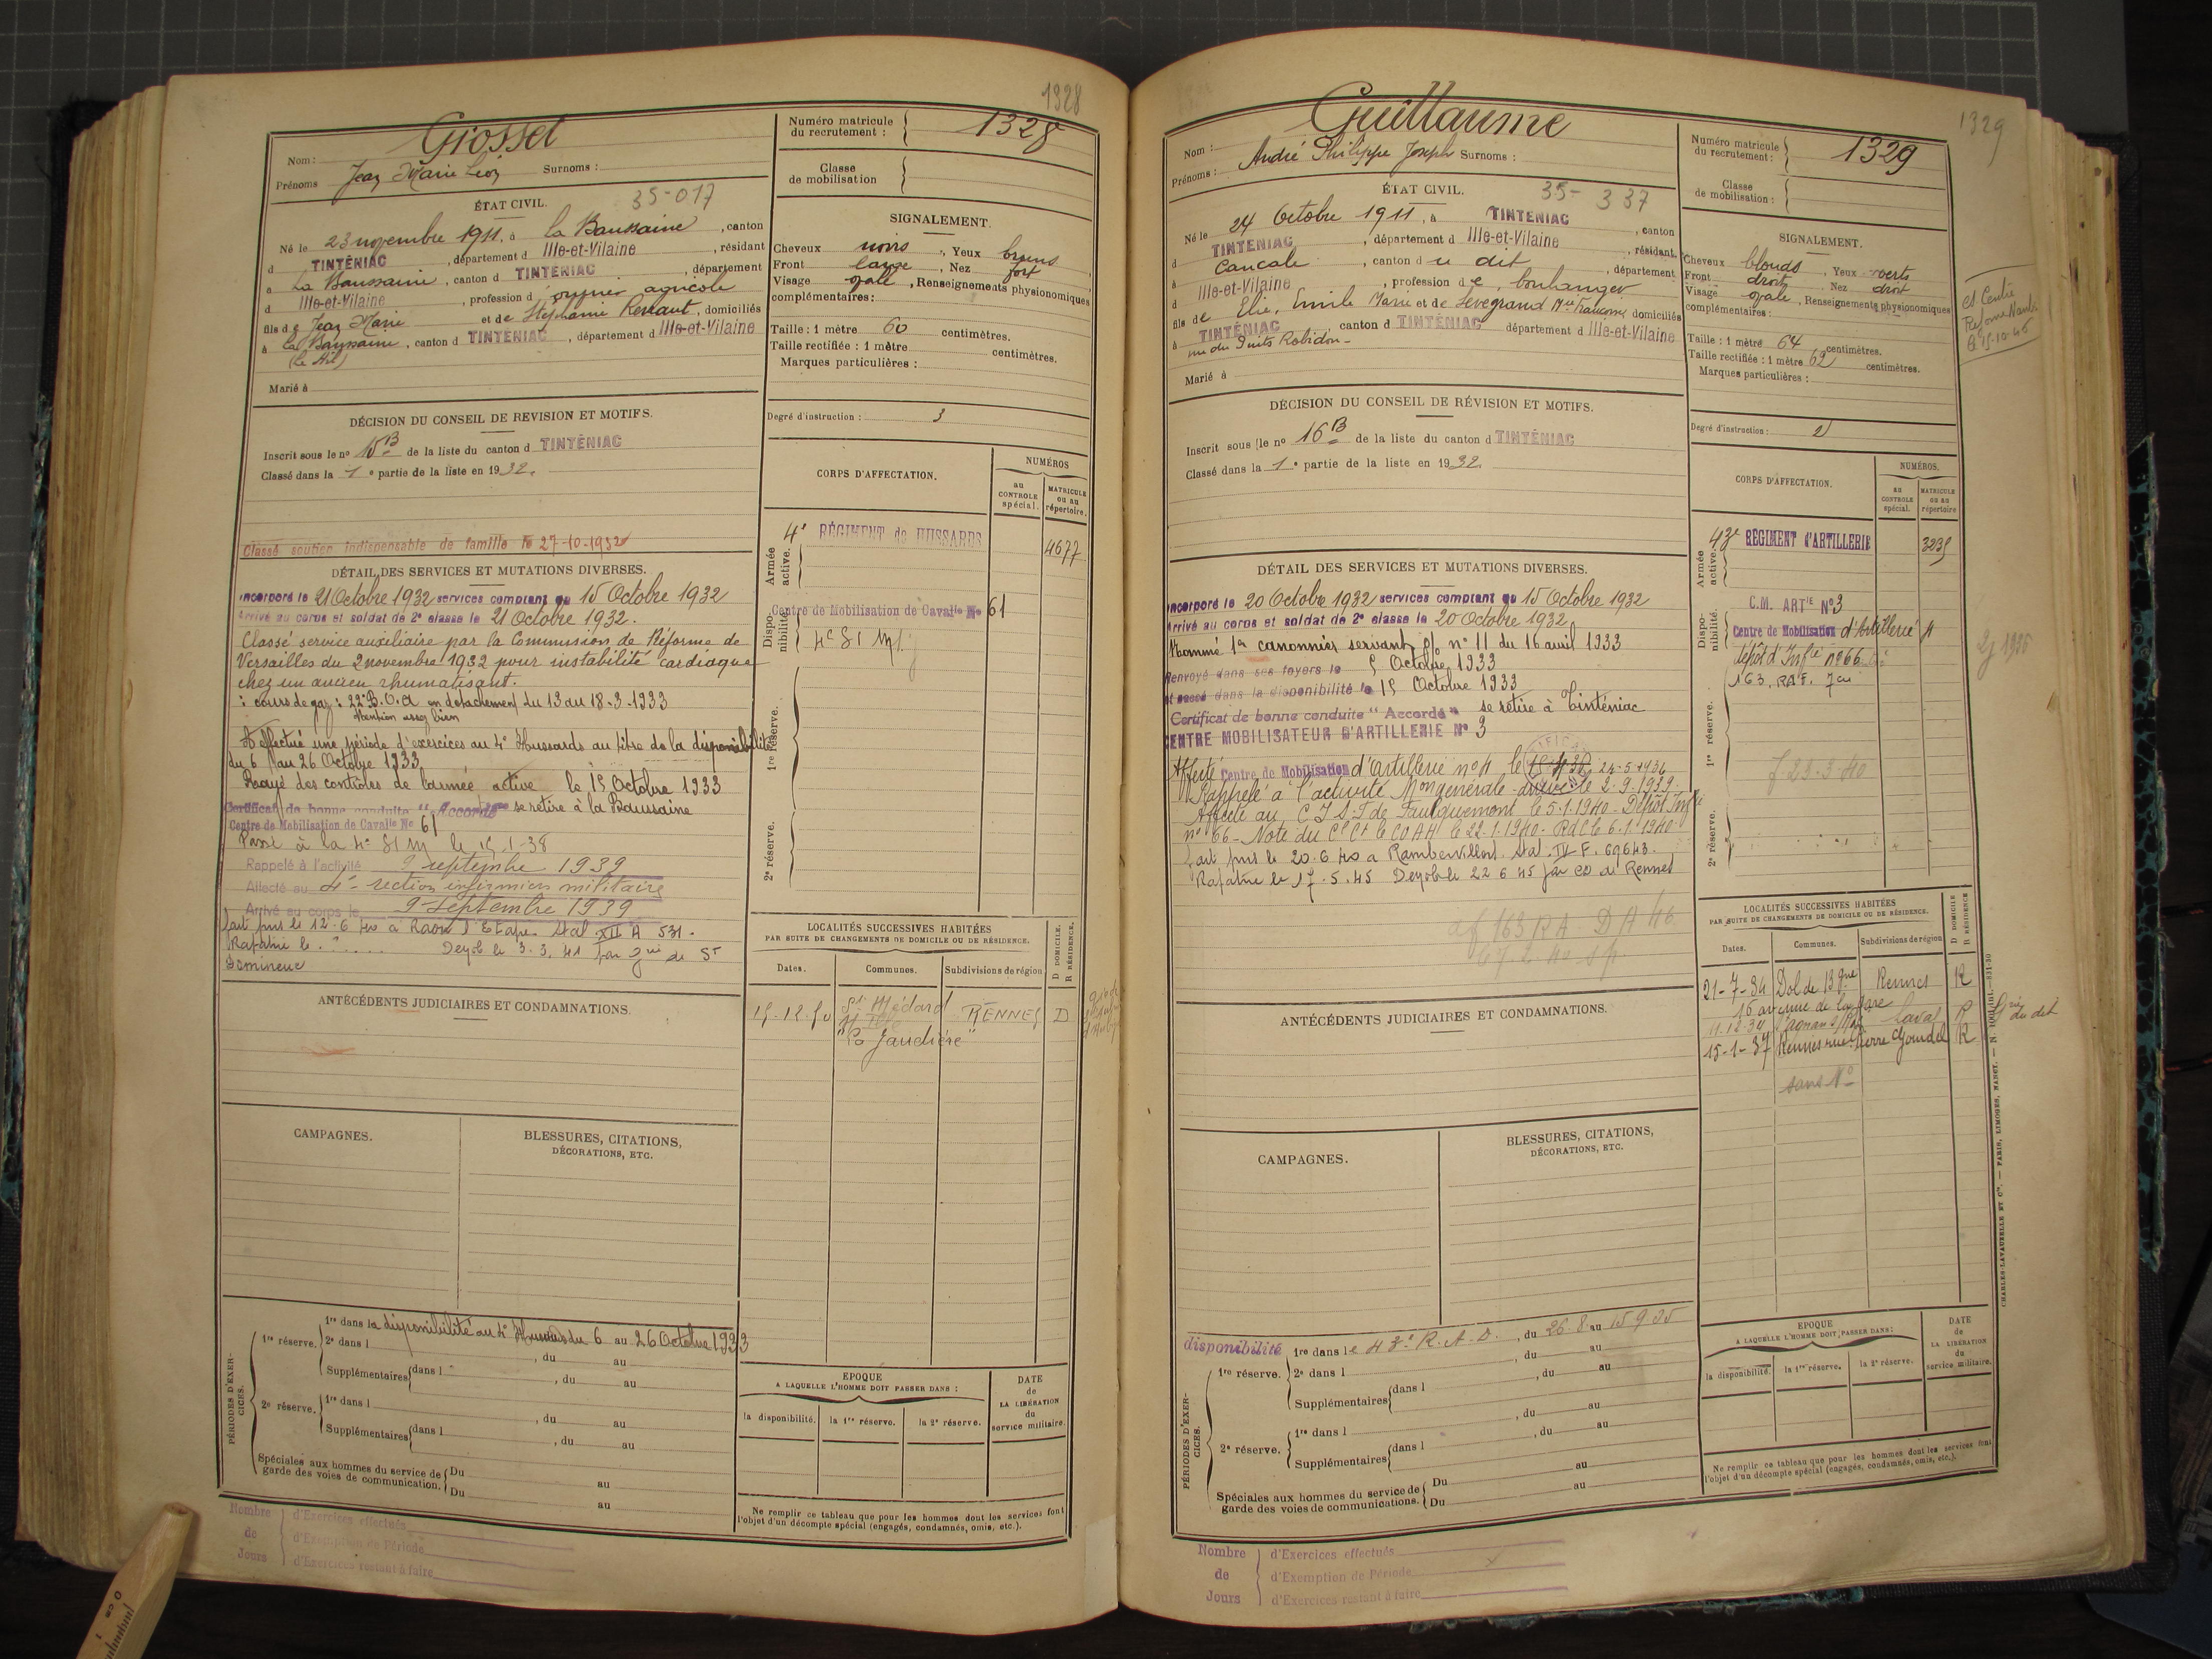 1328
Nom : Grosset
Prénoms Jean Marie Léon Surnoms :
Numéro matricule du recrutement : 1328
Classe de mobilisation
ÉTAT CIVIL. 35-017
Né le 23 novembre 1911, à la Baussaine, canton
d TINTÉNIAC, département d Ille-et-Vilaine, résidant
à La Baussaine, canton d TINTÉNIAC, département
d Ille-et-Vilaine, profession d ouvrier agricole
fils de Jean Marie et de Stéphanie Renaut, domiciliés
à la Baussaine, canton d TINTÉNIAC, département d Ille-et-Vilaine
Marié à
SIGNALEMENT.
Cheveux noirs, Yeux bruns,
Front large, Nez fort
Visage ovale, Renseignements physionomiques
complémentaires :
Taille : 1 mètre 60 centimètres.
Taille rectifiée : 1 mètre centimètres.
Marques particulières :
Degré d'instruction : 3
DÉCISION DU CONSEIL DE REVISION ET MOTIFS.
Inscrit sous le nº 15 B de la liste du canton d TINTÉNIAC
Classé dans la 1e partie de la liste en 1932.
Classé soutien indispensable de famille le 27-10-1932
DÉTAIL DES SERVICES ET MUTATIONS DIVERSES.
Incorporé le 21 Octobre 1932 services comptant du 15 Octobre 1932
Arrivé au corps et soldat de 2e classe le 21 Octobre 1932.
Classé service auxiliaire par la Commission de Réforme de
Versailles du 2 novembre 1932 pour instabilité cardiaque
chez un ancien rhumatisant.
: cours de gaz : 22e B.O.A en détachement du 13 au 18-3-1933
Mention assez bien
A effectué une période d'exercices au 4e Hussards au titre de la disponibilité
du 6 au 26 Octobre 1933
Rayé des contrôles de l'armée active le 15 Octobre 1933
Certificat de bonne conduite "Accordé" se retire à la Baussaine
Centre de Mobilisation de Cavalie Nº 61
Passé à la 4e SIM le 15-1-38
Rappelé à l'activité 9 septembre 1939
Affecté au 4e section infirmiers militaire
Arrivé au corps le 9 septembre 1939
Fait pris le 12-6 40 à Raon l'Etape Stal XII A 531.
Rapatrié le . ? ..... Demob le 3.3.41 par
Domineuc
CORPS D'AFFECTATION.
NUMÉROS
au CONTROLE spécial.
MATRICULE ou au répertoire.
Armée active.
4e RÉGIMENT de HUSSARDS 4677
Disponibilité.
Centre de Mobilisation de Cavalie Nº 61
4e SIM
1re réserve.
2e réserve.
LOCALITÉS SUCCESSIVES HABITÉES
PAR SUITE DE CHANGEMENTS DE DOMICILE OU DE RÉSIDENCE.
D DOMICILE. R RÉSIDENCE.
Dates. Communes. Subdivisions de région
15-12-50 St Médard RENNES D
"La Jaudière"
ANTÉCÉDENTS JUDICIAIRES ET CONDAMNATIONS.
CAMPAGNES.
BLESSURES, CITATIONS,
DÉCORATIONS, ETC.
PÉRIODES D'EXERCICES.
1re réserve. 1re dans la disponibilité au 4e Hussards du 6 au 26 Octobre 1933
2e dans l , du au
Supplémentaires dans l , du au
2e réserve. 1re dans l , du au
Supplémentaires dans l , du au
Spéciales aux hommes du service de garde des voies de communication. Du au
Du au
EPOQUE
A LAQUELLE L'HOMME DOIT PASSER DANS :
la disponibilité. la 1re réserve. la 2e réserve.
DATE de LA LIBÉRATION du service militaire.
Ne remplir ce tableau que pour les hommes dont les services font
l'objet d'un décompte spécial (engagés, condamnés, omis, etc.).
Nombre de Jours
d'Exercices effectués
d'Exemption de Période
d'Exercices restant à faire
1329
Nom : Guillaume
Prénoms : André Philippe Joseph Surnoms :
Numéro matricule du recrutement : 1329
Classe de mobilisation :
ÉTAT CIVIL. 35-337
Né le 24 Octobre 1911, à TINTÉNIAC, canton
d TINTÉNIAC, département d Ille-et-Vilaine, résidant
à Cancale, canton d u dit, département
d Ille-et-Vilaine, profession de boulanger
fils de Elie, Emile Marie et de Levegrand Mie Françoise domiciliés
à TINTÉNIAC, canton d TINTÉNIAC département d Ille-et-Vilaine
rue du Puits Robidou -
Marié à
SIGNALEMENT.
Cheveux blonds, Yeux verts
Front droit, Nez droit
Visage ovale, Renseignements physionomiques
complémentaires :
Taille : 1 mètre 64 centimètres.
Taille rectifiée : 1 mètre 62 centimètres.
Marques particulières :
Degré d'instruction : 2
Réforme
15-10-45
DÉCISION DU CONSEIL DE RÉVISION ET MOTIFS.
Inscrit sous le nº 16 B de la liste du canton d TINTÉNIAC
Classé dans la 1e partie de la liste en 1932
DÉTAIL DES SERVICES ET MUTATIONS DIVERSES.
Incorporé le 20 Octobre 1932 services comptant du 15 Octobre 1932
Arrivé au corps et soldat de 2e classe le 20 Octobre 1932
Nommé 1er canonnier servant nº 11 du 16 avril 1933
Renvoyé dans ses foyers le 5 Octobre 1933
et passé dans la disponibilité le 15 Octobre 1933
Certificat de bonne conduite "Accordé" se retire à Tinténiac
CENTRE MOBILISATEUR D'ARTILLERIE Nº 3
Affecté Centre de Mobilisation d'artillerie nº 4 le 24-5-1936
Rappelé à l'activité Mon générale arrivé le 2-9-1939.
Affecté au C I S F de Faulquemont le 5-1-1940 - Dépôt Infie
nº 66 - Note du le COAH le 22-1-1940. RdC le 6-1-1940.
Fait pris le 20.6 40 à Rambervillers. Stal. IV F. 69643.
Rapatrié le 17.5.45 Demob le 22 6 45 par CD de Rennes
af 163 RA D A 46
CORPS D'AFFECTATION.
NUMÉROS.
au CONTROLE spécial.
MATRICULE ou au répertoire
Armée active.
43e RÉGIMENT d'ARTILLERIE 3235
Disponibilité.
C.M. ARTIE Nº3
Centre de Mobilisation d'Artillerie 4
dépôt d'Infie nº 66
163. RAF.
1re réserve.
f 23-3-40
2e réserve.
LOCALITÉS SUCCESSIVES HABITÉES
PAR SUITE DE CHANGEMENTS DE DOMICILE OU DE RÉSIDENCE.
D DOMICILE R RÉSIDENCE
Dates. Communes. Subdivisions de région
21-7-34 Dol de Bgne Rennes R
16 avenue de la gare
11.12.34 Laval R
15-1-37 Rennes rue Pierre Gourdel R
sans Nº
ANTÉCÉDENTS JUDICIAIRES ET CONDAMNATIONS.
CAMPAGNES.
BLESSURES, CITATIONS,
DÉCORATIONS, ETC.
PÉRIODES D'EXERCICES.
disponibilité 1re dans le 43e R.A.D. , du 26-8 au 15 9 35
1re réserve. 2e dans l , du au
Supplémentaires dans l , du au
2e réserve. 1re dans l , du au
Supplémentaires dans l , du au
Spéciales aux hommes du service de garde des voies de communications. Du au
Du au
EPOQUE
A LAQUELLE L'HOMME DOIT PASSER DANS :
la disponibilité. la 1re réserve. la 2e réserve.
DATE de LA LIBÉRATION du service militaire.
Ne remplir ce tableau que pour les hommes dont les services font
l'objet d'un décompte spécial (engagés, condamnés, omis, etc.).
Nombre de Jours
d'Exercices effectués
d'Exemption de Période
d'Exercices restant à faire
CHARLES-LAVAUZELLE ET Cie. — PARIS, LIMOGES, NANCY.